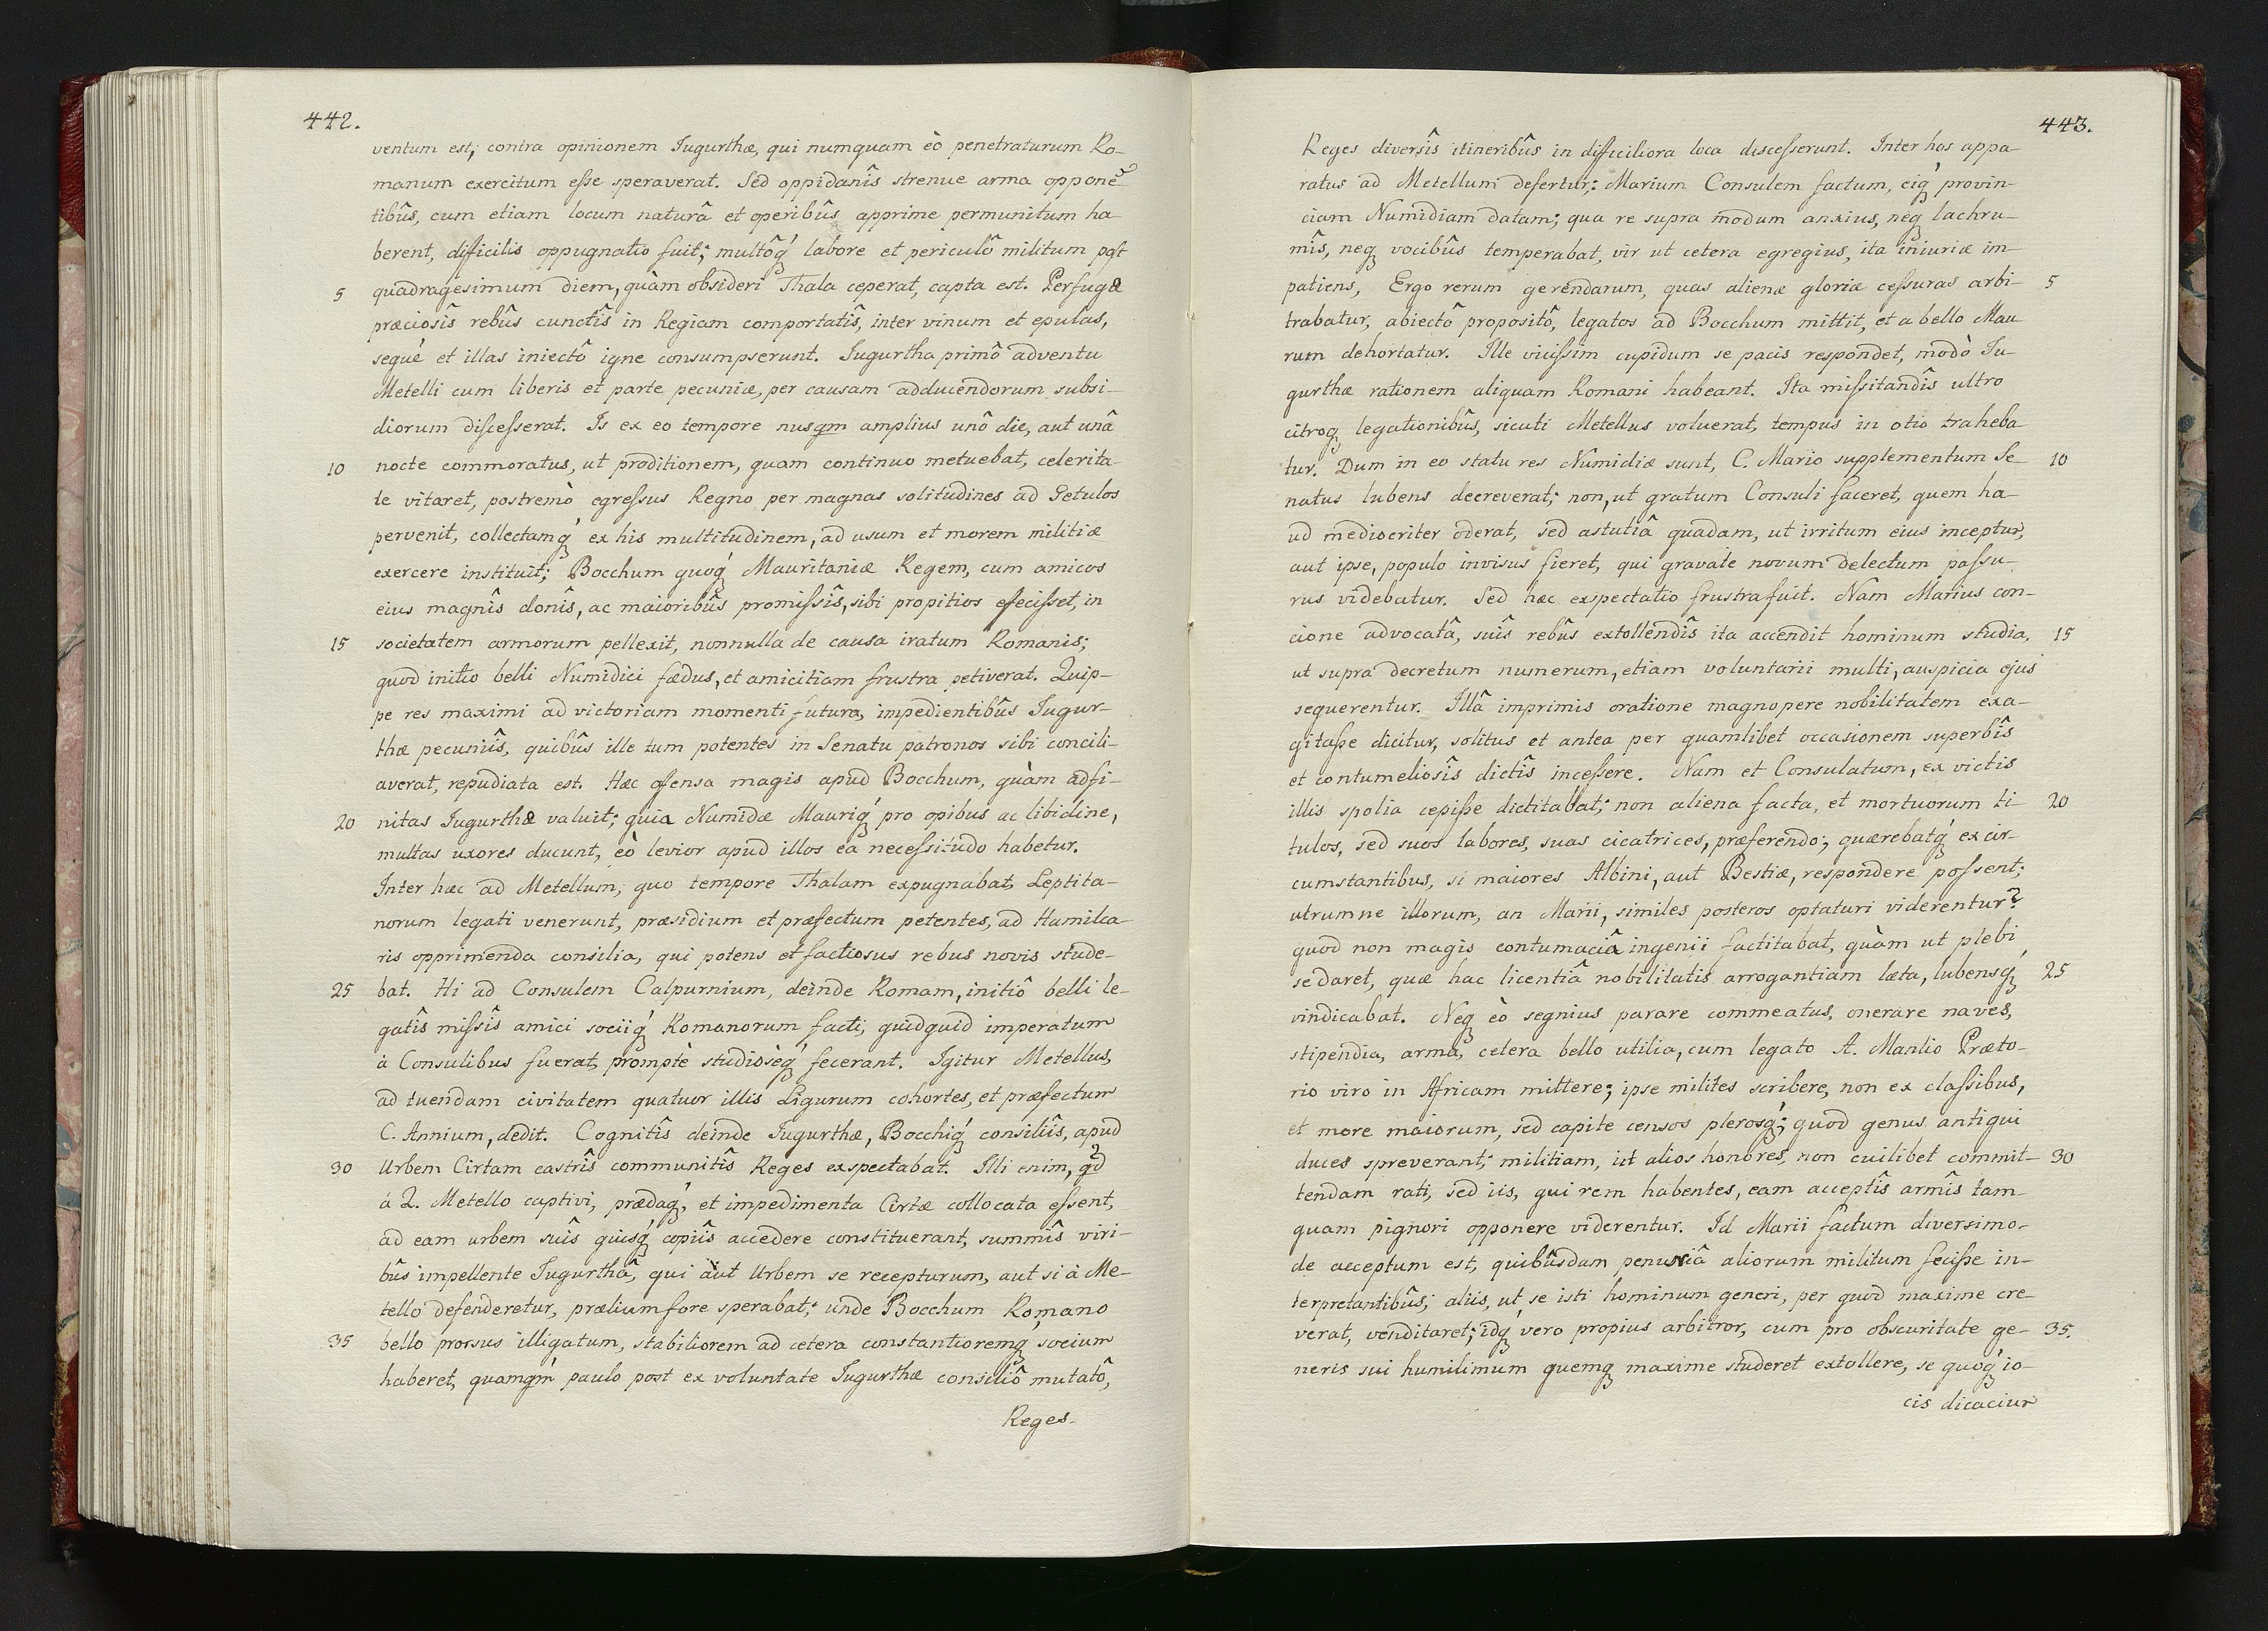 442.
ventum est; contra opinionem Iugurthæ, qui numquam eò penetraturum Ro-
manum exercitum eſse speraverat. Sed oppidanîs strenue arma opponẽ-
tibûs, cum etiam locum naturâ et operibûs apprime permunitum ha-
berent, difficilis oppugnatio fuit; multôq́ labore et periculô militum post
5 quadragesimum diem, quàm obsideri Thala ceperat, capta est. Perfugæ
præciosîs rebûs cunctîs in Regiam comportatîs, inter vinum et epulas,
sequè et illas iniectô igne consumpserunt. Iugurtha primô adventu
Metelli cum liberis et parte pecuniæ, per causam adducendorum subsi-
diorum diſceſserat. Is ex eo tempore nusqm amplius unô die, aut unâ
10 nocte commoratus, ut proditionem, quam continuo metuebat, celerita-
te vitaret, postremò egreſsus Regno per magnas solitudines ad Getulos
pervenit, collectamq́ ex his multitudinem, ad usum et morem militiæ
exercere instituit; Bocchum quoq́ Mauritaniæ Regem, cum amicos
eius magnîs donîs, ac maioribûs promiſsîs, sibi propitios efeciſset, in
15 societatem armorum pellexit, nonnulla de causa iratum Romanis;
quod initio belli Numidici fædus, et amicitiam frustra petiverat. Quip-
pe res maximi ad victoriam momenti futura, impedientibûs Iugur-
thæ pecuniîs, quibûs ille tum potentes in Senatu patronos sibi concili-
averat, repudiata est. Hæc offensa magis apud Bocchum, quàm adfi-
20 nitas Iugurthæ valuit; quia Numidæ Mauriq́ pro opibus ac libidine,
multas uxores ducunt, eò levior apud illos ea neceſsitudo habetur.
Inter hæc ad Metellum, quo tempore Thalam expugnabat, Leptita-
norum legati venerunt, præsidium et præfectum petentes, ad Hamilca-
ris opprimenda consilia, qui potens et factiosus rebus novis stude-
25 bat. Hi ad Consulem Calpurnium, deinde Romam, initiô belli le-
gatîs miſsîs amici sociiq́ Romanorum facti, quidquid imperatum
à Consulibus fuerat, promptè studiosèq́ fecerant. Igitur Metellus,
ad tuendam civitatem quatuor illis Ligurum cohortes, et præfectum
C. Annium, dedit. Cognitîs deinde Iugurthæ, Bocchiq́ consiliîs, apud
30 Urbem Cirtam castrîs communitîs Reges exspectabat. Illi enim, qd
à Q. Metello captivi, prædaq́, et impedimenta Cirtæ collocata eſsent,
ad eam urbem suîs quisq́ copiîs accedere constituerant, summîs viri-
bûs impellente Iugurthâ, qui aut Urbem se recepturum, aut si à Me-
tello defenderetur, prælium fore sperabat; unde Bocchum Romano
35 bello prorsus illigatum, stabiliorem ad cetera constantioremq socium
haberet, quamqm paulo post ex voluntate Iugurthæ consiliô mutatô,
Reges
443.
Reges diversîs itineribûs in difficiliora loca disceſserunt. Inter hos appa-
ratus ad Metellum defertur: Marium Consulem factum, eiq́ provin-
ciam Numidiam datam; qua re supra modum anxius, neq lachru-
mîs, neq vocibûs temperabat, vir ut cetera egregius, ita iniuriæ im-
patiens, Ergo rerum gerendarum, quas alienæ gloriæ ceſsuras arbi- 5
trabatur, abiectô propositô, legatos ad Bocchum mittit, et a bello Mau-
rum dehortatur. Ille viciſsim cupidum se pacis respondet, modò Iu-
gurthæ rationem aliquam Romani habeant. Ita miſsitandîs ultro
citroq legationibûs, sicuti Metellus voluerat, tempus in otio traheba-
tur. Dum in eo statu res Numidiæ sunt, C. Mario supplementum Se- 10
natus lubens decreverat; non, ut gratum Consuli faceret, quem ha-
ud mediocriter oderat, sed astutiâ quadam, ut irritum eius inceptum,
aut ipse, populo invisus fieret, qui gravate novum delectum paſsu-
rus videbatur. Sed hæc expectatio frustra fuit. Nam Marius con-
cione advocatâ, suîs rebûs extollendîs ita accendit hominum studia, 15
ut supra decretum numerum, etiam voluntarii multi, auspicia ejus
sequerentur. Illâ imprimis oratione magnopere nobilitatem exa-
gitaſse dicitur, solitus et antea per quamlibet occasionem superbîs
et contumeliosîs dictîs inceſsere. Nam et Consulatum, ex victis
illis spolia cepiſse dictitabat; non aliena facta, et mortuorum ti- 20
tulos, sed suos labores, suas cicatrices, præferendo; quærebatq́ ex cir-
cumstantibus, si maiores Albini, aut Bestiæ, respondere poſsent;
utrumne illorum, an Marii, similes posteros optaturi viderentur?
quod non magis contumaciâ ingenii factitabat, quàm ut plebi
se daret, quæ hac licentiâ nobilitatis arrogantiam læta, lubensq́ 25
vindicabat. Neq eò segnius parare commeatus, onerare naves,
stipendia, arma, cetera bello utilia, cum legato A. Manlio Præto-
rio viro in Africam mittere; ipse milites scribere, non ex claſsibus,
et more maiorum, sed capite censos plerosq́; quod genus antiqui
duces spreverant; militiam, ut alios honores, non cuilibet commit- 30
tendam rati, sed iis, qui rem habentes, eam acceptîs armîs tam-
quam pignori opponere viderentur. Id Marii factum diversimo-
de acceptum est, quibûsdam penuriâ aliorum militum feciſse in-
terpretantibûs; aliis, ut se isti hominum generi, per quod maxime cre-
verat, venditaret; idq́ vero propius arbitror, cum pro obscuritate ge- 35.
neris sui humilimum quemq maxime studeret extollere, se quoq́ io-
cis dicacium